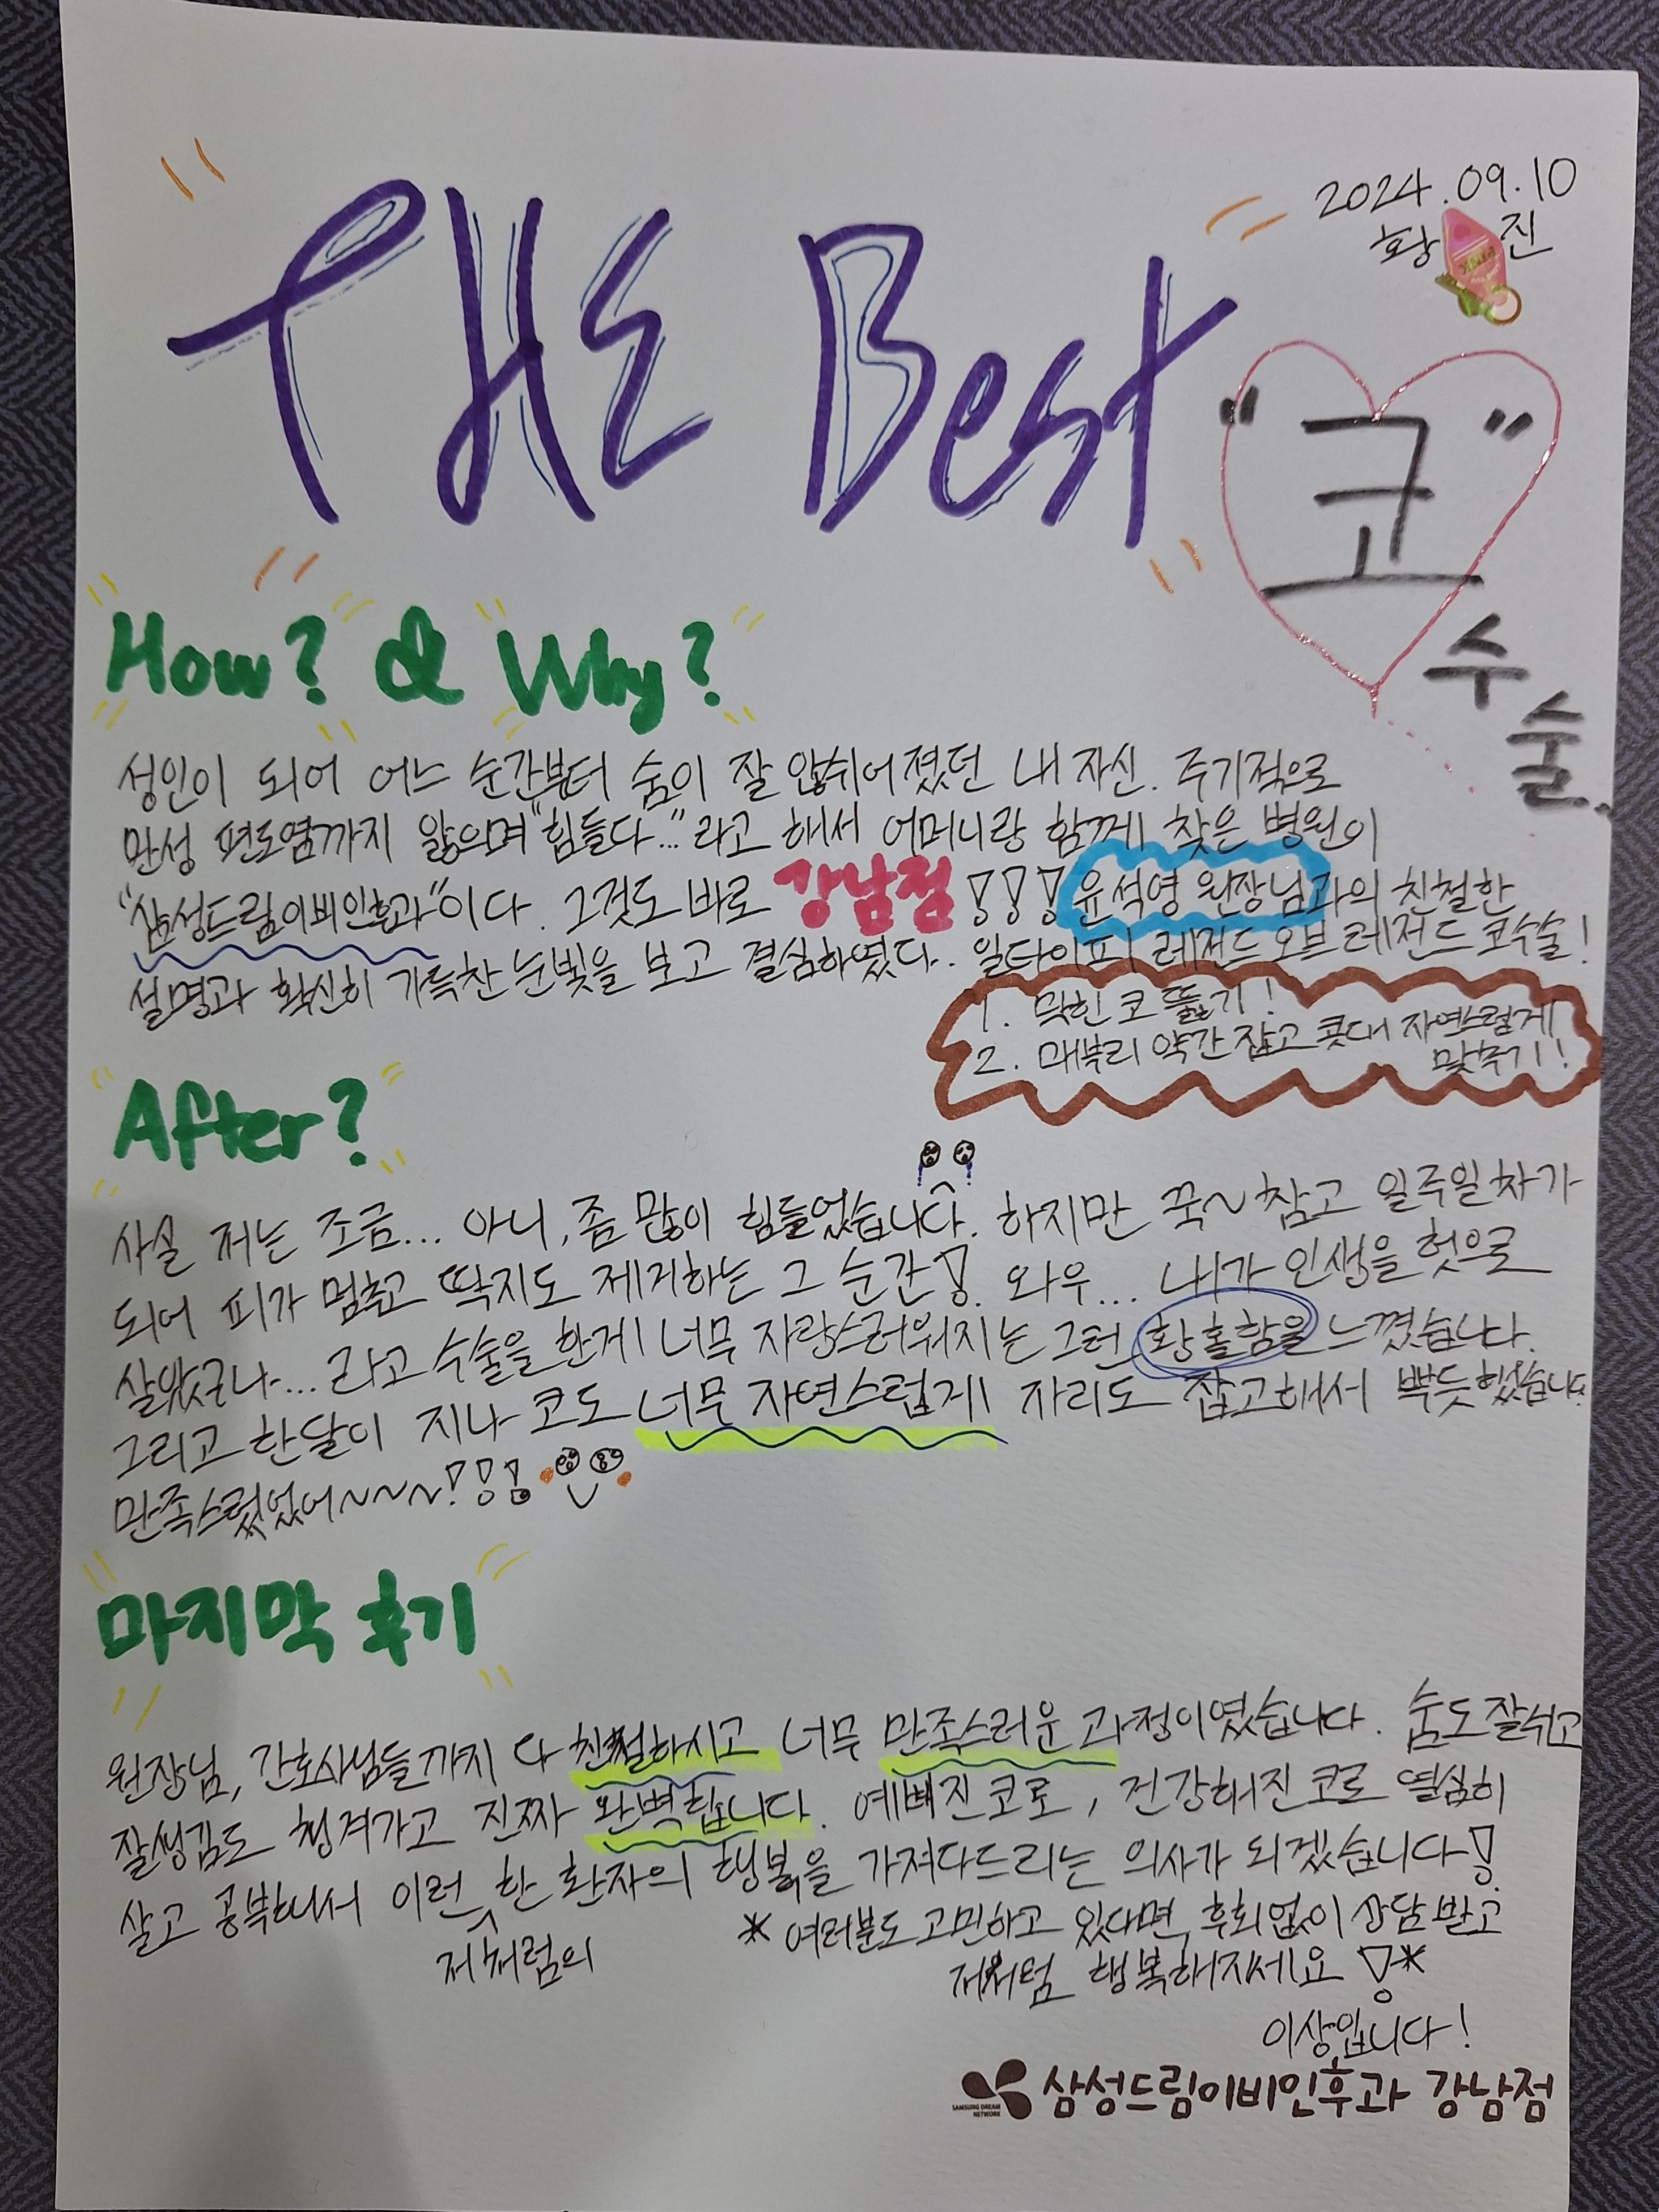 2024.09.10
황 진
THE Best
"코"
수술.
How? & Why?
성인이 되어 어느 순간부터 숨이 잘 안쉬어졌던 내 자신. 주기적으로
만성 편도염까지 앓으며 "힘들다..." 라고 해서 어머니랑 함께 찾은 병원이
"삼성드림이비인후과"이다. 그것도 바로 강남점!!! 윤석영 원장님과의 친절한
설명과 확신히 가득찬 눈빛을 보고 결심하였다. 일타이피 레전드 오브 레전드 코수술!
1. 막힌 코 뚫기!
2. 매부리 약간 잡고 콧대 자연스럽게
맞추기!
After?
사실 저는 조금... 아니, 좀 많이 힘들었습니다. 하지만 꾹~ 참고 일주일차가
되어 피가 멈추고 딱지도 제거하는 그 순간! 와우... 내가 인생을 헛으로
살았구나... 라고 수술을 한게 너무 자랑스러워지는 그런 황홀함을 느꼈습니다.
그리고 한달이 지나 코도 너무 자연스럽게 자리도 잡고해서 뿌듯했습니다
만족스러웠었어~~~!!!
마지막 후기
원장님, 간호사님들까지 다 친절하시고 너무 만족스러운 과정이였습니다. 숨도 잘쉬고
잘생김도 챙겨가고 진짜 완벽합니다. 예뻐진 코로, 건강해진 코로 열심히
살고 공부해서 이런 한 환자의 행복을 가져다드리는 의사가 되겠습니다!
저처럼의
* 여러분도 고민하고 있다면, 후회없이 상담 받고
저처럼 행복해지세요!*
이상입니다!
SAMSUNG DREAM
NETWORK
삼성드림이비인후과 강남점